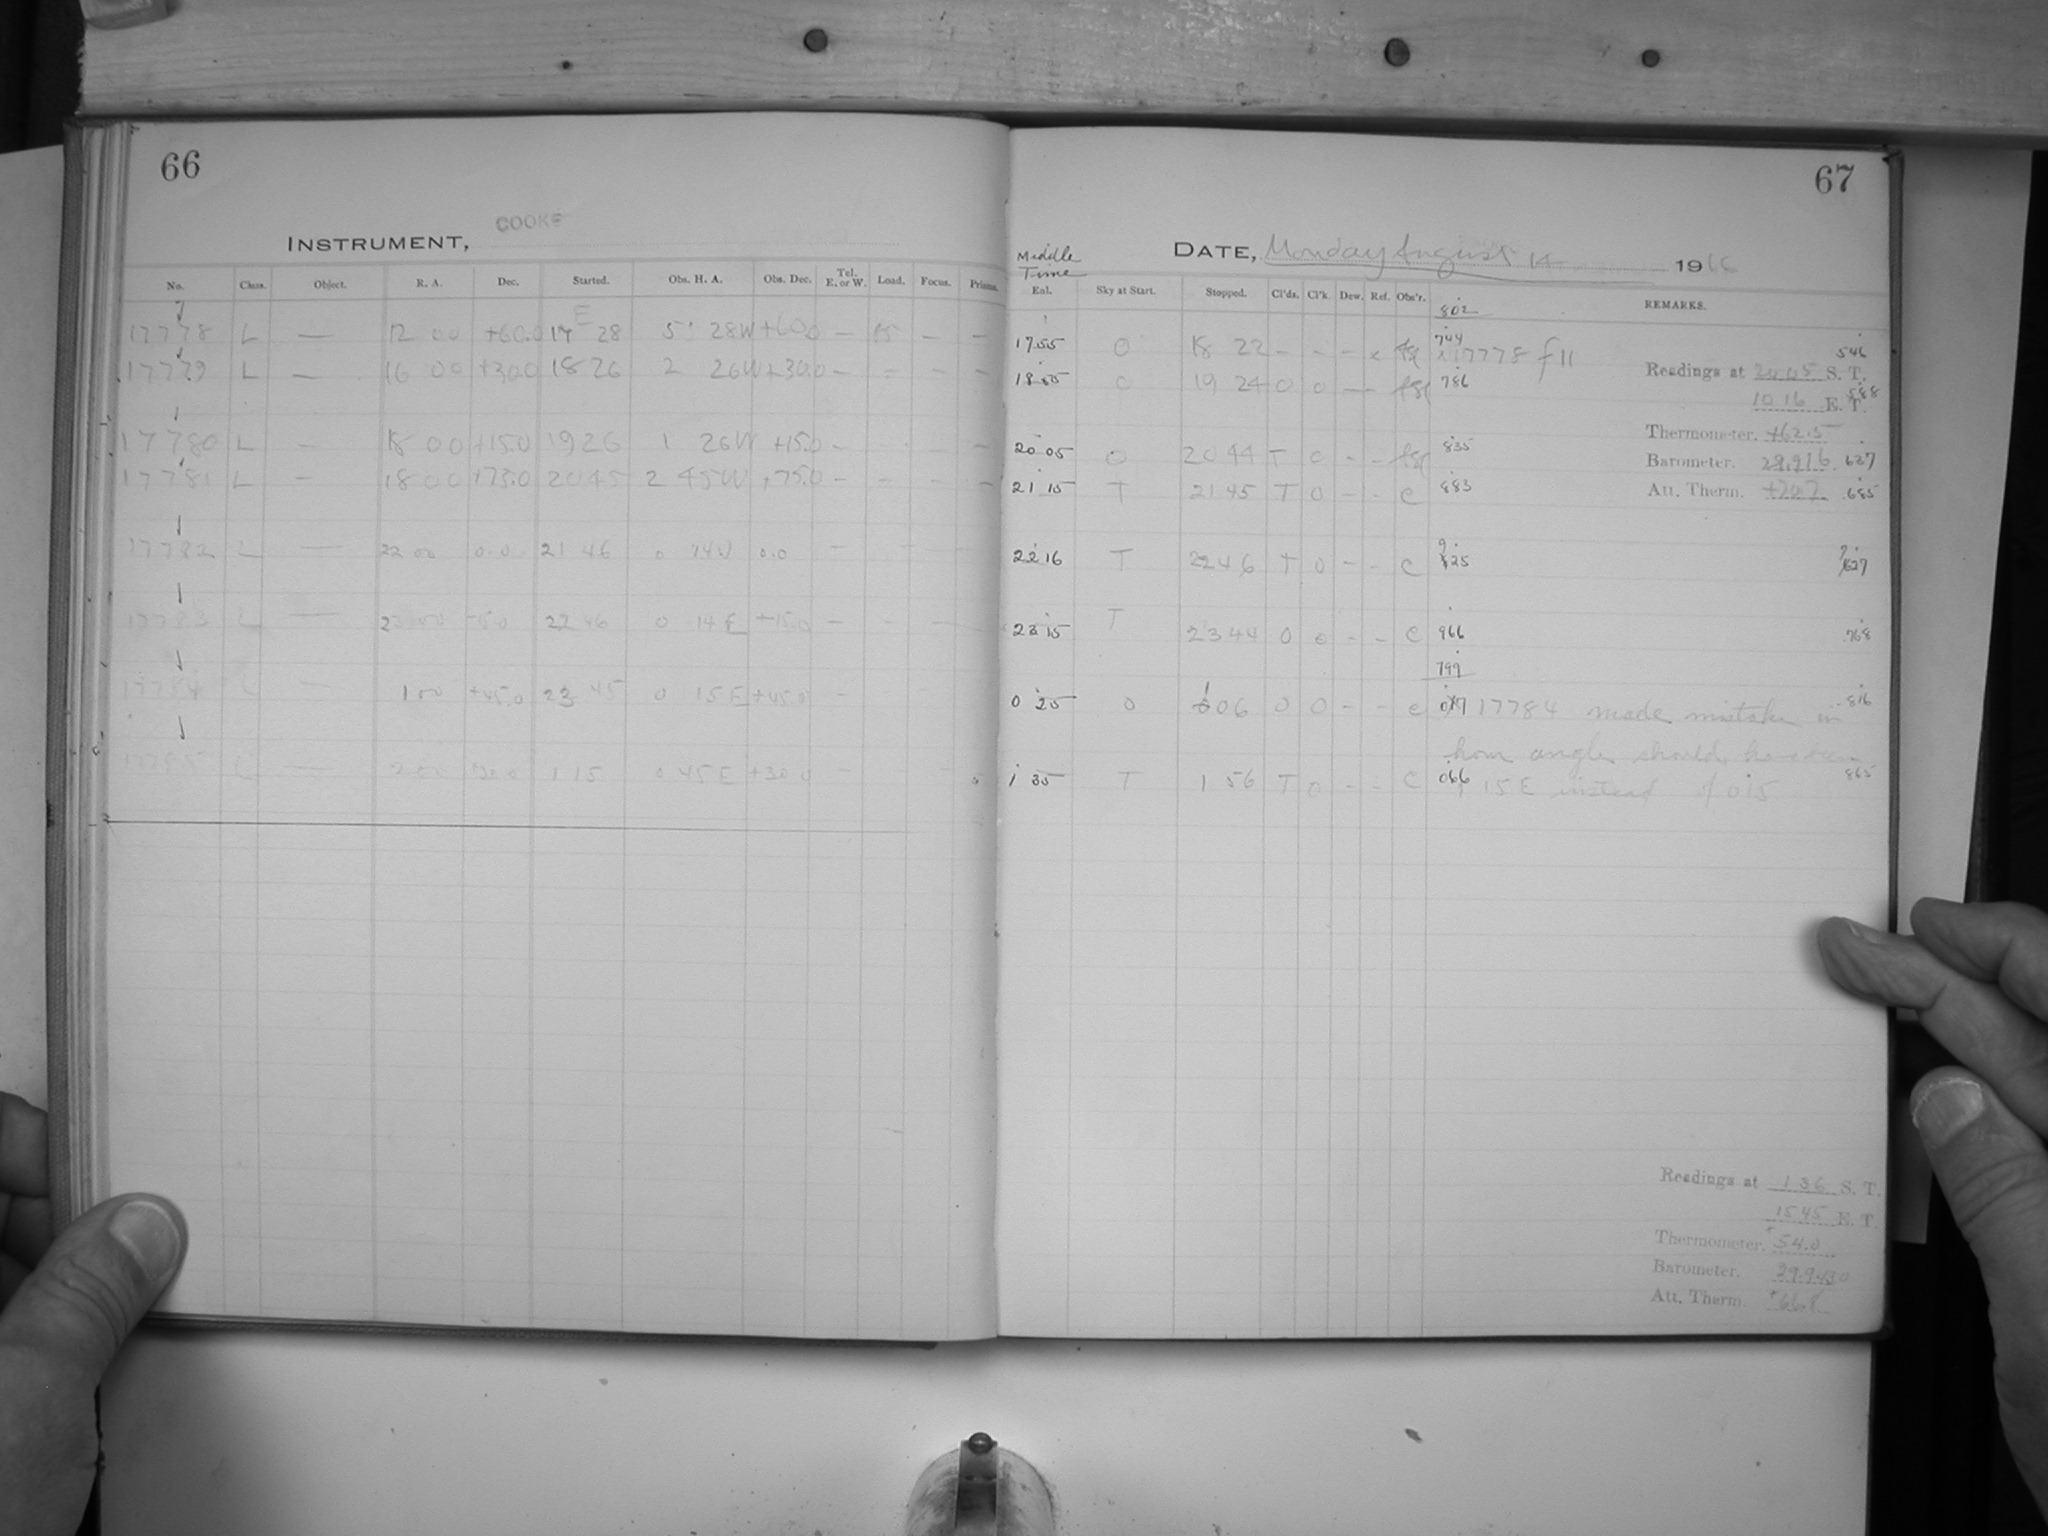 66
COOKE
INSTRUMENT,
No. Class. Object. R. A. Dec. Started. Obs. H. A. Obs. Dec. Tel. E. or W. Load. Focus. Prisms.
17778 L — 12 00 +60.0 17 28 5 28W +60.0 — 15 — —
17779 L — 16 00 +30.0 18 26 2 26W +30.0 — – – –
17780 L — 18 00 +15.0 19 26 1 26W +15.0 –
17781 L – 18 00 +75.0 20 45 2 45W +75.0 – – – –
17782 L — 22 00 0.0 21 46 0 14W 0.0 –
17783 L — 23 00 22 46 0 14E +15.0 – –
17784 L — 1 00 +45.0 23 45 0 15E +45.0 –
17785 L — 2 00 1 15 0 45E +30.0 –
67
DATE, Monday August 14 1916
Middle Time
Eal. Sky at Start. Stopped. Cl'ds. Cl'k. Dew. Ref. Obs'r. REMARKS.
802
17 55 0 18 22 – – – x 744 17778 f 11 546
Readings at 20 05 S. T.
18 55 0 19 24 0 0 — 786 588
10 16 E. T.
Thermometer. +62.5
20 05 0 20 44 T 0 – – 835 Barometer. 29.916 .637
21 15 T 21 45 T 0 – – C 883 Att. Therm. .685
22 16 T 22 46 T 0 – – C 925 727
23 15 T 23 44 0 0 – – C 966 .768
799
0 25 0 1 06 0 0 – – C 17784 made mistake in 816
hour angle should have been
1 35 T 1 56 T 0 – – C 066 1 15 E instead of 0 15 865
Readings at 1 36 S. T.
15 45 E. T.
Thermometer. +54.0
Barometer.
Att. Therm. +66.8